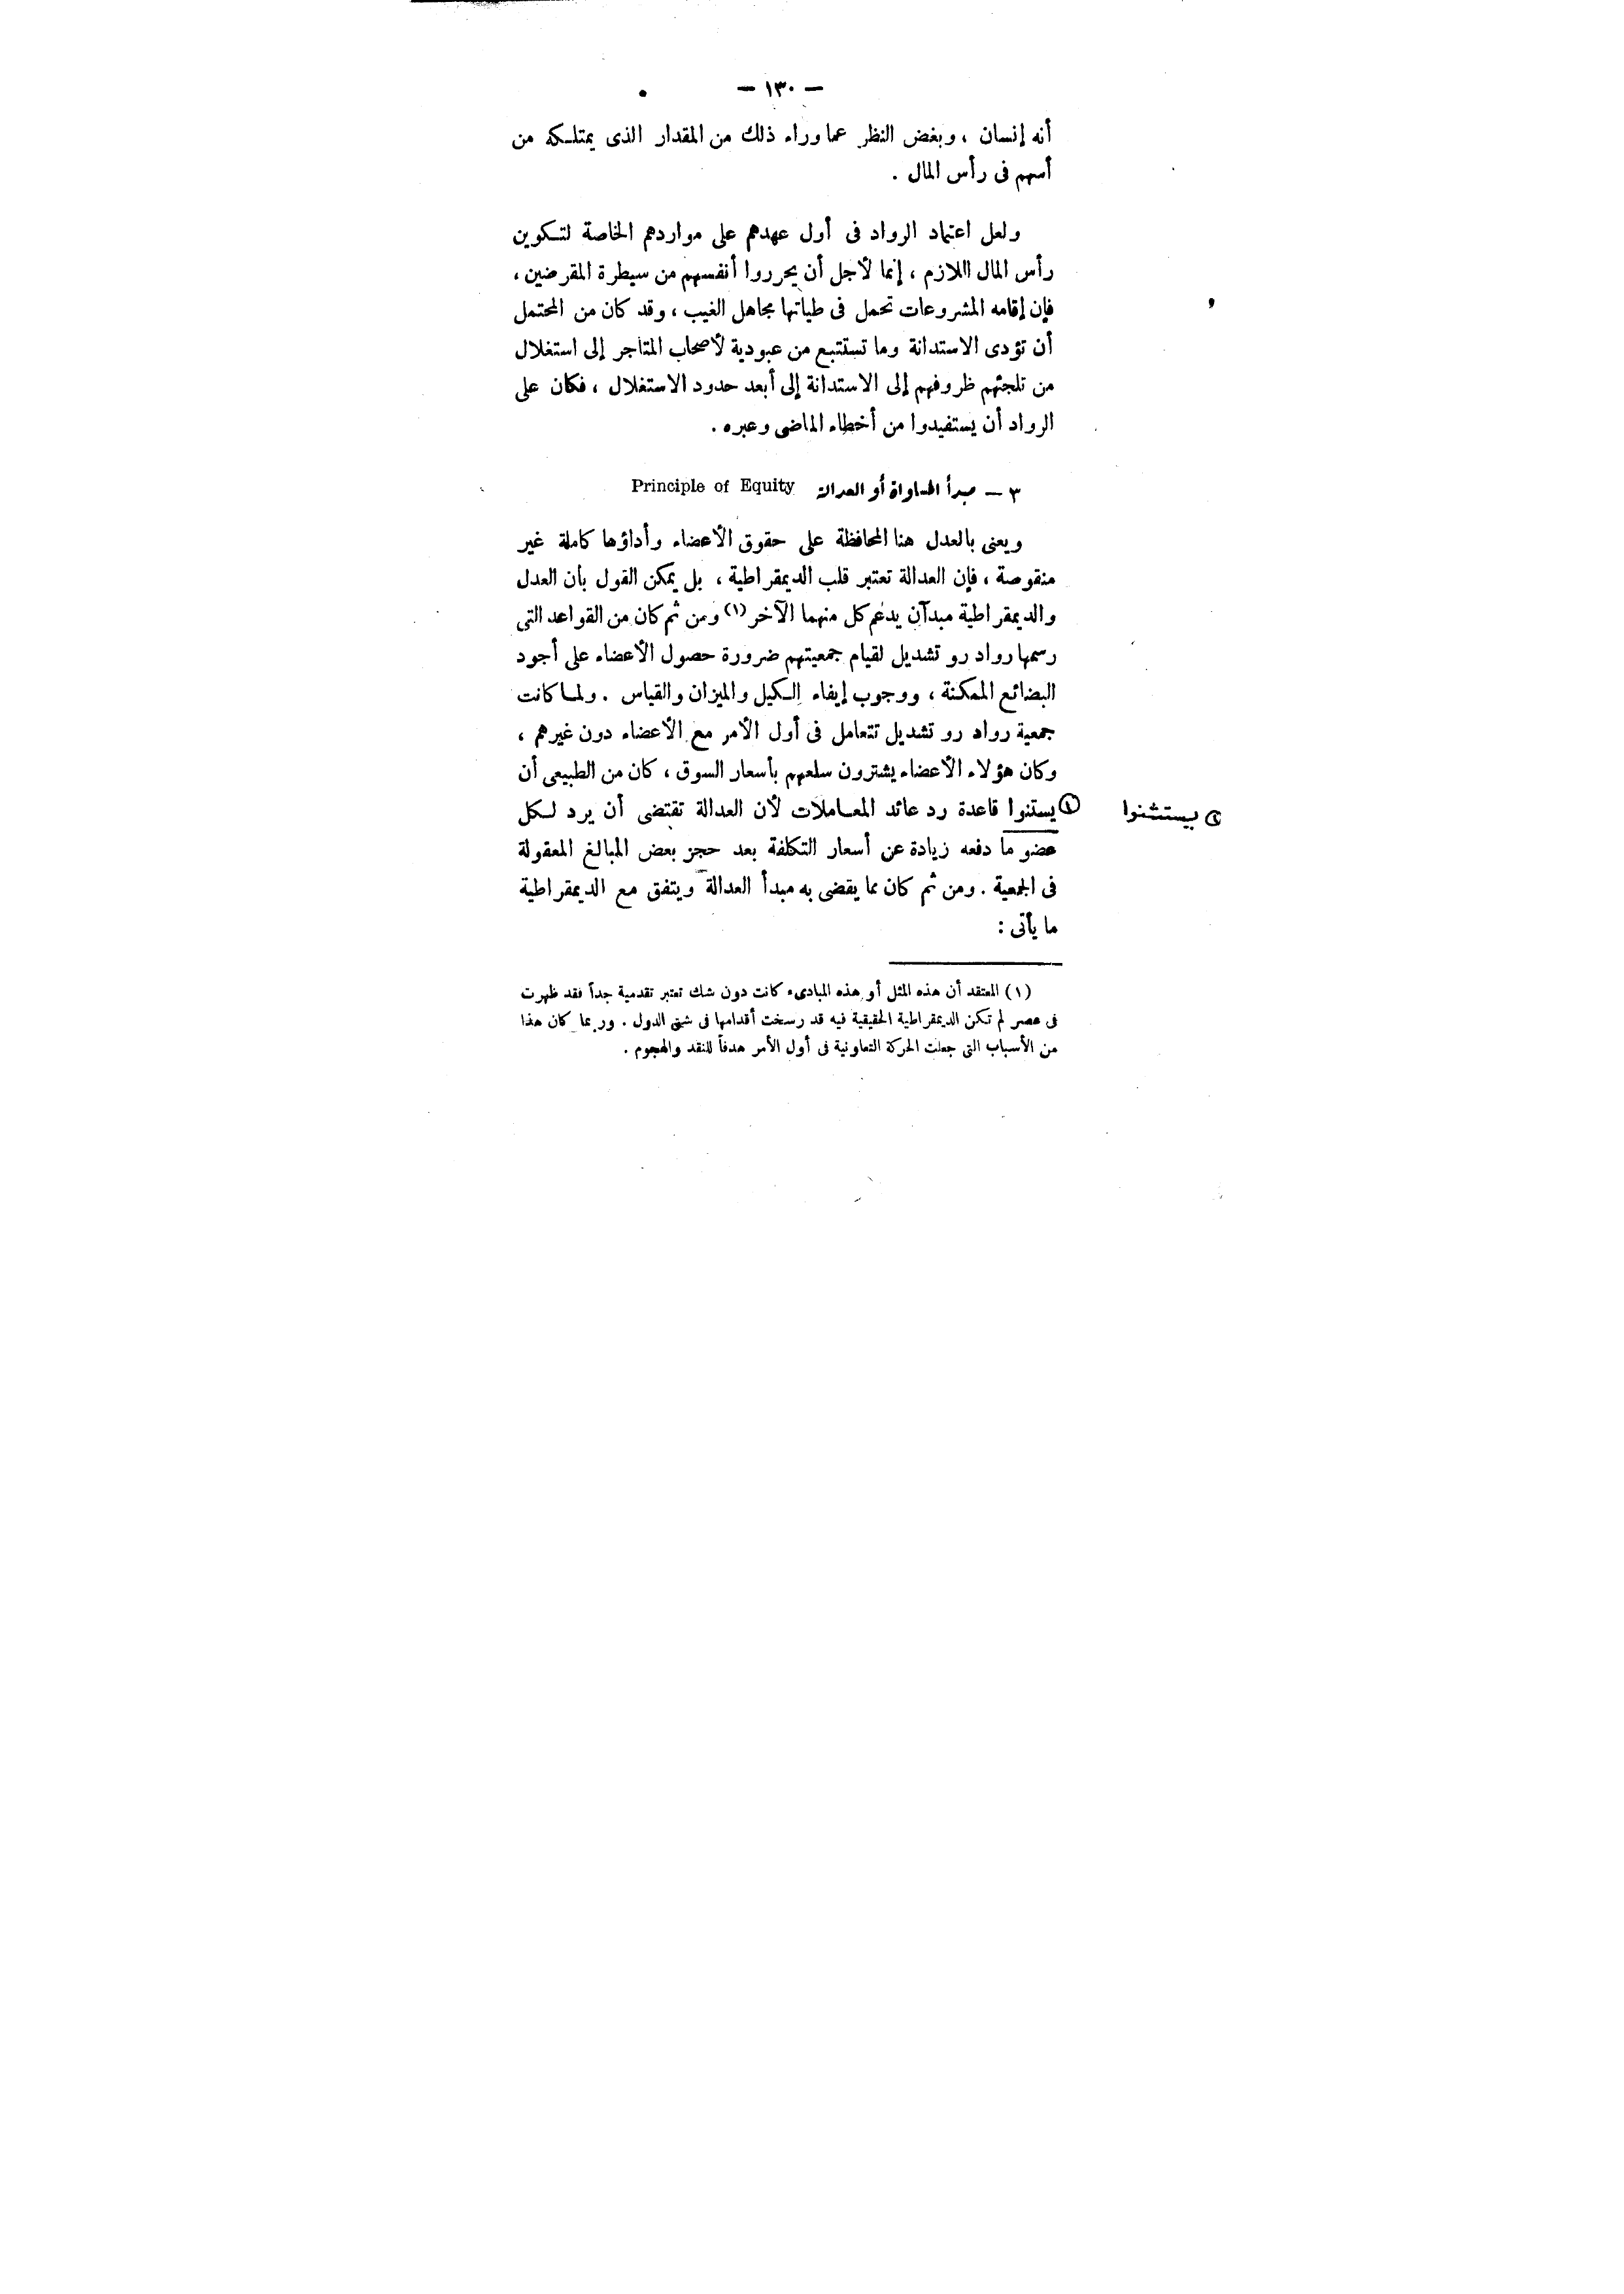 — ١٣٠ —
أنه إنسان ، وبغض النظر عما وراء ذلك من المقدار الذى يمتلكه من
أسهم فى رأس المال .
ولعل اعتماد الرواد فى أول عهدهم على مواردهم الخاصة لتكوين
رأس المال االلازم ، إنما لأجل أن يحرروا أنفسهم من سيطرة المقرضين ،
فإن إقامه المشروعات تحمل فى طياتها مجاهل الغيب ، وقد كان من المحتمل
أن تؤدى الاستدانة وما تستتبع من عبودية لأصحاب المتاجر إلى استغلال
من تلجئهم ظروفهم إلى الاستدانة إلى أبعد حدود الاستغلال ، فكان على
الرواد أن يستفيدوا من أخطاء الماضى وعبره .
٣ — مبدأ المساواة أو العدالة Principle of Equity
ويعنى بالعدل هنا المحافظة على حقوق الأعضاء وأداؤها كاملة غير
منقوصة ، فإن العدالة تعتبر قلب الديمقراطية ، بل يمكن القول بأن العدل
والديمقراطية مبدآن يدعم كل منهما الآخر (١) ومن ثم كان من القواعد التى
رسمها رواد رو تشديل لقيام جمعيتهم ضرورة حصول الأعضاء على أجود
البضائع الممكنة ، ووجوب إيفاء الكيل والميزان والقياس . ولما كانت
جمعية رواد رو تشديل تتعامل فى أول الأمر مع الأعضاء دون غيرهم ،
وكان هؤلاء الأعضاء يشترون سلعهم بأسعار السوق ، كان من الطبيعى أن
يستنوا قاعدة رد عائد المعاملات لأن العدالة تقتضى أن يرد لكل
يستثنوا
عضو ما دفعه زيادة عن أسعار التكلفة بعد حجز بعض المبالغ المعقولة
فى الجمعية . ومن ثم كان مما يقضى به مبدأ العدالة ويتفق مع الديمقراطية
ما يأتى :
(١) المعتقد أن هذه المثل أو هذه المبادىء كانت دون شك تعتبر تقدمية جداً فقد ظهرت
فى عصر لم تكن الديمقراطية الحقيقية فيه قد رسخت أقدامها فى شتى الدول . وربما كان هذا
من الأسباب التى جعلت الحركة التعاونية فى أول الأمر هدفاً للنقد والهجوم .